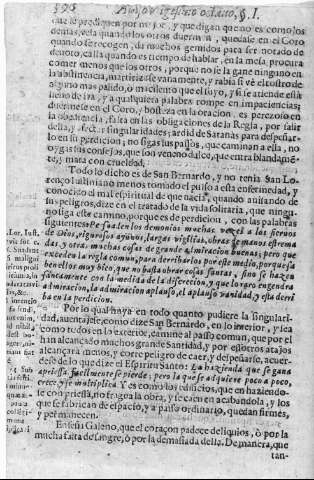 596 Aviso vigesimo octavo, §. I.
que le prediquen por mejor, y que digan que no es como los
demas, vela quando los otros duermen, quedase en el Coro
quando se recogen, da muchos gemidos para ser notado de
devoto, calla quando es tiempo de hablar, en la mesa procura
comer menos que los otros, porque no se la gane ninguno en
la abstinencia, martirizase vanamente, y rabia si vè el rostro de
alguno mas palido, ò macilento que el suyo, y si se atiende està
lleno de ira, y a qualquiera palabra rompe en impaciencias;
duermese en el Coro, y bosteza en la oracion, es perezoso en
la obediencia, falta en las obligaciones de la Regla, por salir
della, y afectar singularidades; ardid de Satanàs para despeñar-
lo en su perdicion; no sigas tus passos, que caminan a ella, no
oygas tus consejos, que son veneno dulce, que entra blandame-
te, y mata con crueldad.
Todo lo dicho es de San Bernardo, y no tenia San Lo-
renço Iustiniano menos tomado el pulso a esta enfermedad, y
conocido el mal espiritual de que nacia, quando avisando de
sus peligros, dize en el tratado de la vida solitaria, que ningu-
no siga este camino, porque es de perdicion, con las palabras
siguientes: Persuaden los demonios muchas vezes a los siervos
de Dios, rigurosos ayunos, largas vigilias, obras de manos estrema-
das, y otras muchas cosas de grande admiracion buenas; pero que
exceden la regla comun, para derribarlos por este medio, porque sa-
ben ellos muy bien, que no basta obrar cosas santas, sino se hazen
santamente con la medida de la discrecion, y que lo raro engendra
admiracion, la admiracion aplauso, el aplauso vanidad, y esta derri-
ba en la perdicion.
Por lo qual huya en todo quanto pudiere la singulari-
dad, aventajese, como dize San Bernardo, en lo interior, y sea
como todos en lo exterior, camine al passo comun, que por el
han alcançado muchos grande Santidad, y por essotros atajos
alcançarà menos, y corre peligro de caer, y despeñarse, acuer-
dese de lo que dize el Espiritu Santo: La hazienda que se gana
apriessa, facilmente se pierde; pero la que se adquiere poco a poco,
crece, y se multiplica. Y es como los edificios, que en haziendo-
se con priessa, no fragua la obra, y se caen en acabandola, y los
que se fabrican de espacio, y a passo ordinario, quedan firmes,
y permanecen.
Enseña Galeno, que el coraçon padece deliquios, ò por la
mucha falta de sangre, ò por la demasiada della. De manera, que
tan-